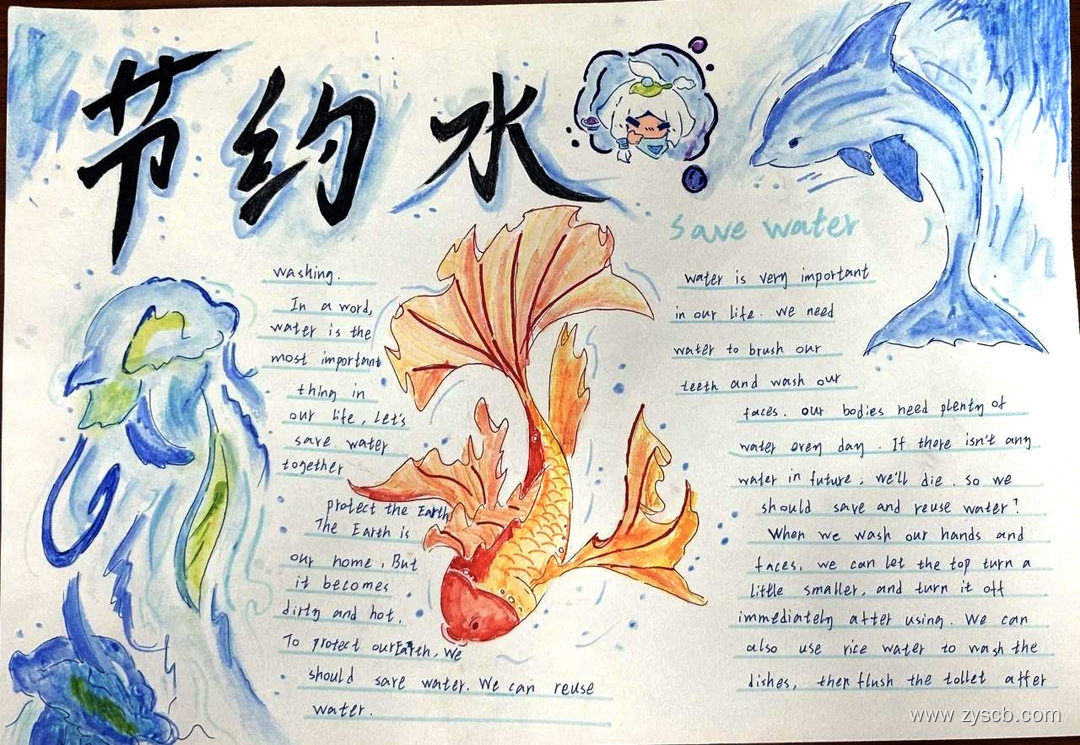 节约水
save water
water is very important
in our life. we need
water to brush our
teeth and wash our
faces. our bodies need plenty of
water every day. If there isn't any
water in future, we'll die. so we
should save and reuse water?
When we wash our hands and
faces, we can let the top turn a
little smaller, and turn it off
immediately after using. We can
also use rice water to wash the
dishes, then flush the toilet after
washing.
In a word,
water is the
most important
thing in
our life, Let's
save water
together
protect the Earth
The Earth is
our home, But
it becomes
dirty and hot.
To protect our Earth, we
should save water. We can reuse
water.
www.zyscb.com